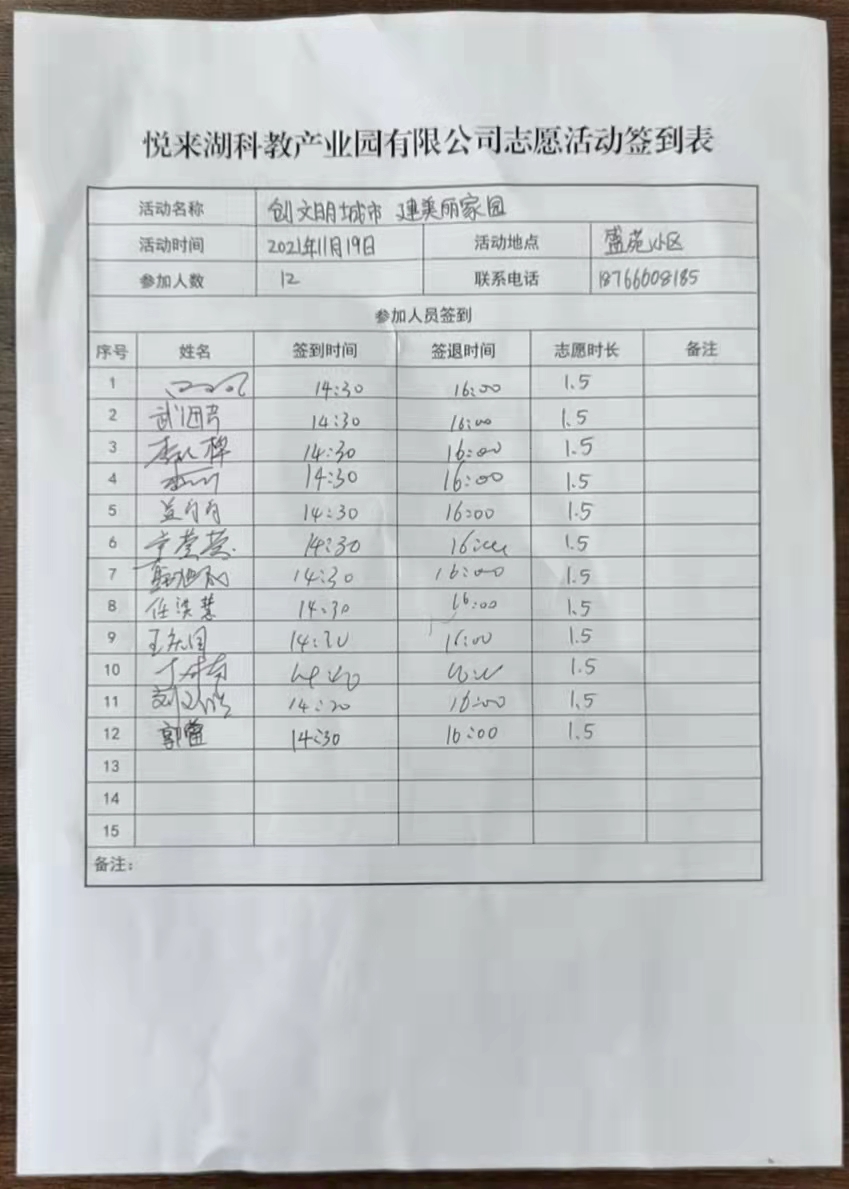 悦来湖科教产业园有限公司志愿活动签到表
活动名称 创文明城市 建美丽家园
活动时间 2021年11月19日 活动地点 盛苑小区
参加人数 12 联系电话 18766608185
参加人员签到
序号 姓名 签到时间 签退时间 志愿时长 备注
1 14:30 16:00 1.5
2 14:30 16:00 1.5
3 14:30 16:00 1.5
4 14:30 16:00 1.5
5 14:30 16:00 1.5
6 14:30 1.5
7 14:30 16:00 1.5
8 任洪慧 14:30 16:00 1.5
9 16:00 1.5
10 1.5
11 16:00 1.5
12 郭蕾 14:30 16:00 1.5
13
14
15
备注：